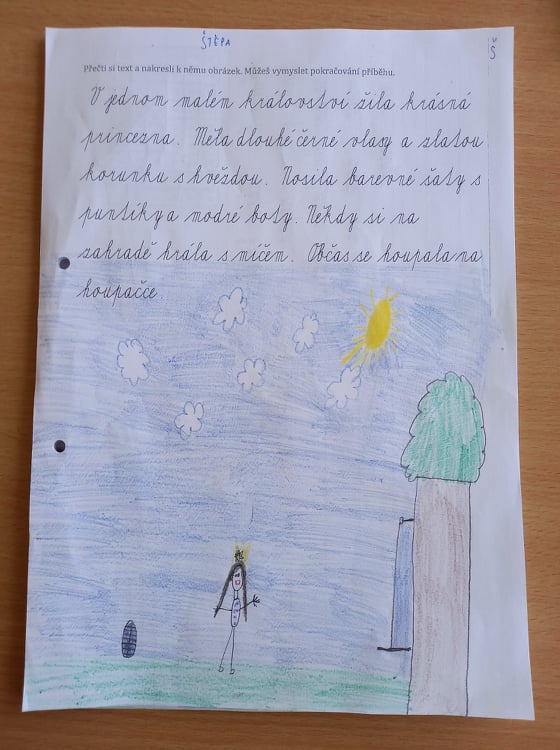 ŠTĚPA
Š
Přečti si text a nakresli k němu obrázek. Můžeš vymyslet pokračování příběhu.
V jednom malém království žila krásná
princezna. Měla dlouhé černé vlasy a zlatou
korunku s hvězdou. Nosila barevné šaty s
puntíky a modré boty. Někdy si na
zahradě hrála s míčem. Občas se houpala na
houpačce.